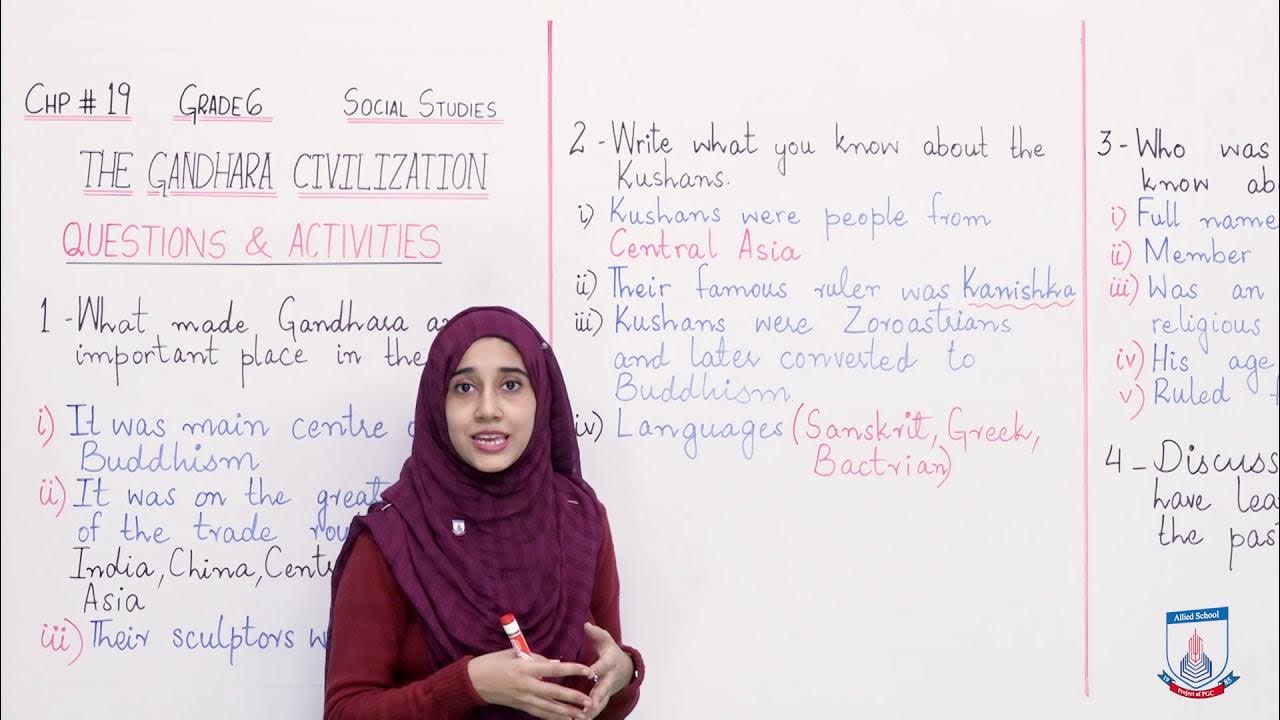 CHP # 19 GRADE 6 SOCIAL STUDIES
THE GANDHARA CIVILIZATION
QUESTIONS & ACTIVITIES
1 - What made Gandhara
important place in the
i) It was main centre
Buddhism
ii) It was on the great
of the trade
India, China,
Asia
iii) Their sculptors
2 - Write what you know about the
Kushans.
i) Kushans were people from
Central Asia
ii) Their famous ruler was Kanishka
iii) Kushans were Zoroastrians
and later converted to
Buddhism.
iv) Languages (Sanskrit, Greek,
Bactrian)
3 - Who was
know
i) Full name
ii) Member
iii) Was an
religious
iv) His age
v) Ruled
4 - Discuss
have
the
Allied School
19 85
Project of PGC